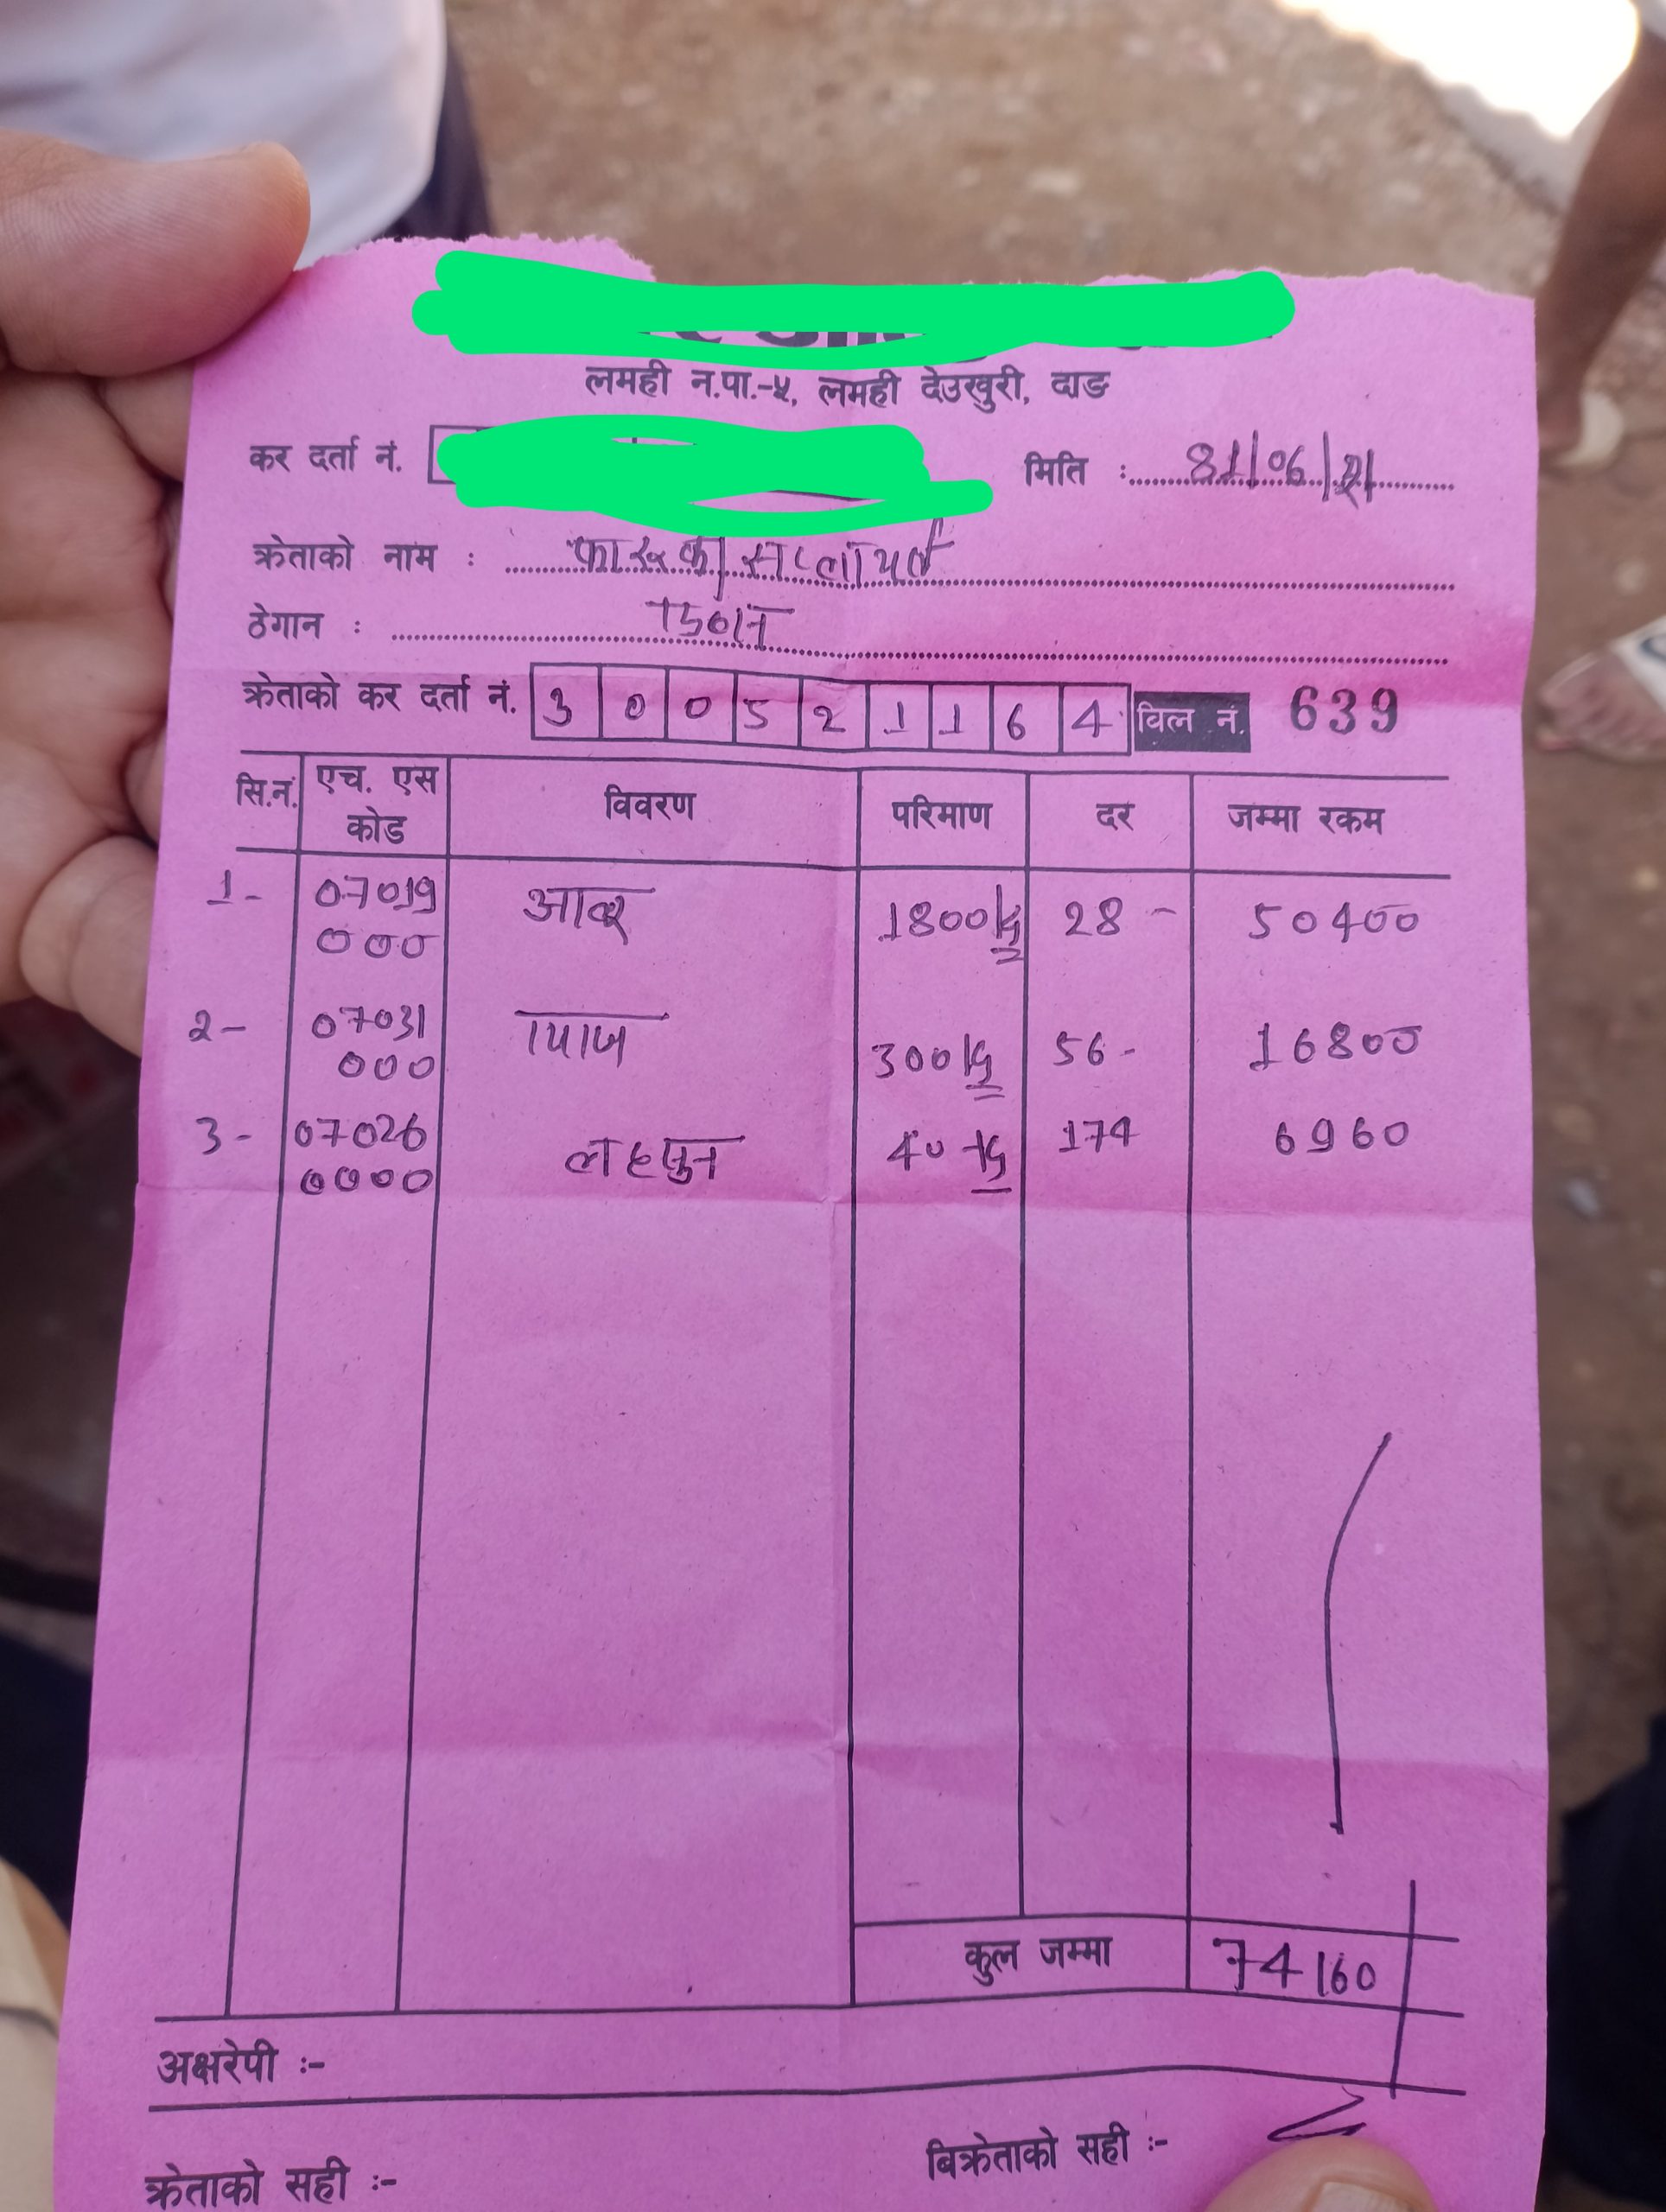 लमही न.पा.-५, लमही देउखुरी, दाङ
कर दर्ता नं.
मिति : 81/06/21
क्रेताको नाम : सप्लायर्स
ठेगान :
क्रेताको कर दर्ता नं. 3 0 0 5 2 1 1 6 4 विल नं. 639
सि.नं. एच. एस कोड विवरण परिमाण दर जम्मा रकम
1- 07019 000 आलु 1800 kg 28 - 50400
2- 07031 000 पियाज 300 kg 56 - 16800
3- 07026 0000 लहसुन 40 kg 174 6960
कुल जम्मा 74160
अक्षरेपी :-
बिक्रेताको सही :-
क्रेताको सही :-